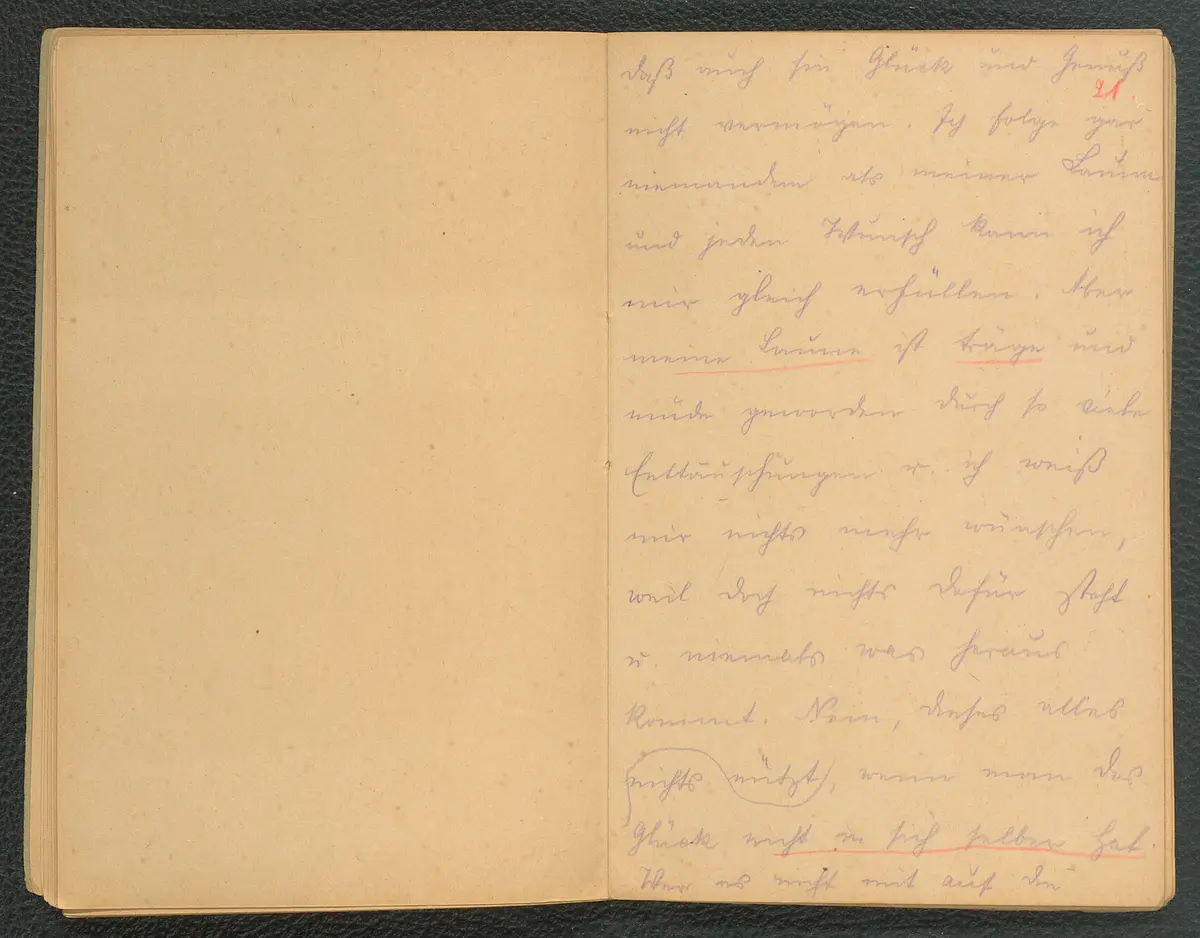 daß auch sie Glück und Genuß
21.
nicht vermögen. Ich folge gar
niemandem als meiner Laune
und jeden Wunsch kann ich
mir gleich erfüllen. Aber
meine Laune ist träge und
müde geworden durch so viele
Enttäuschungen u. ich weiß
mir nichts mehr wünschen,
weil doch nichts dafür steht
u. niemals was heraus
kommt. Nein, dieses alles
nichts nützt, wenn man das
Glück nicht in sich selber hat.
Wer es nicht mit auf die